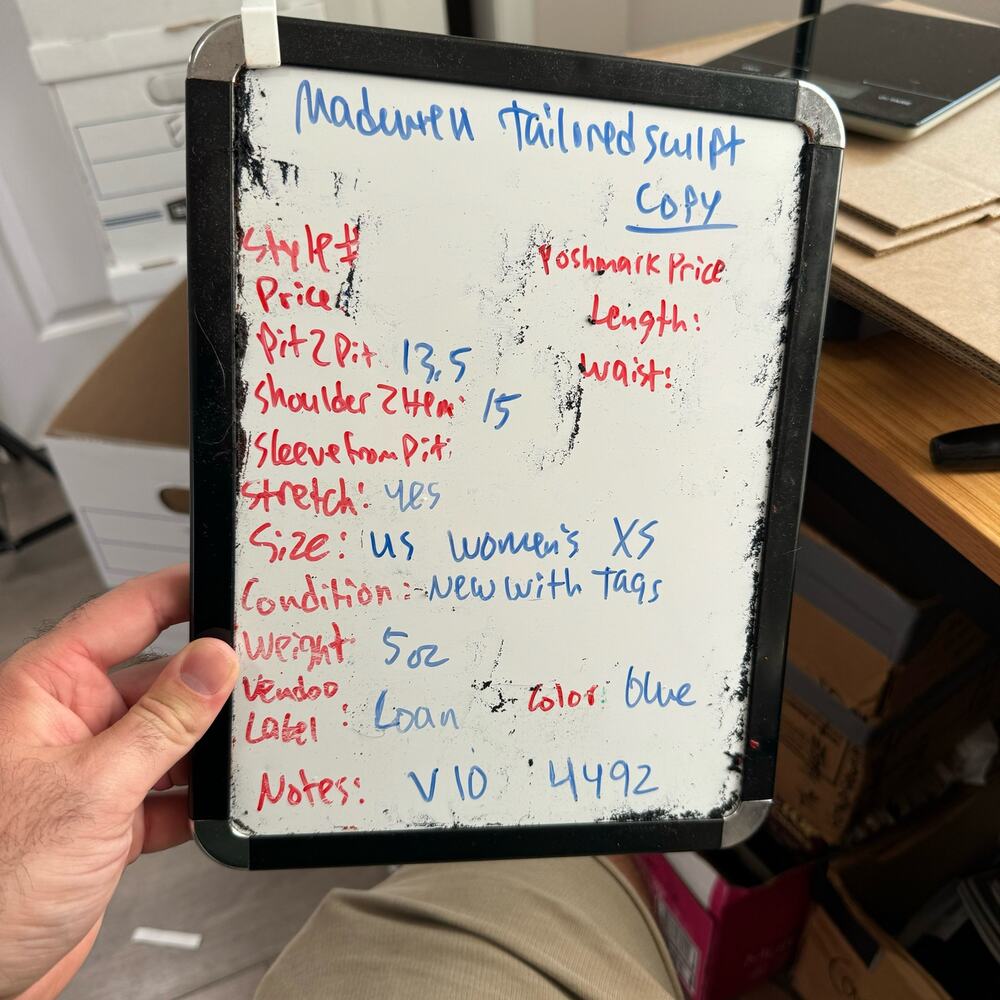 Madewell Tailored sculpt
Copy
Style#
Poshmark Price
Price:
Length:
Pit2Pit 13.5
Waist:
Shoulder2Hem: 15
Sleeve from Pit:
Stretch: yes
Size: US women's XS
Condition: New with Tags
Weight 5oz
Vendoo
Label : Loan
Color: blue
Notes: V10 4492